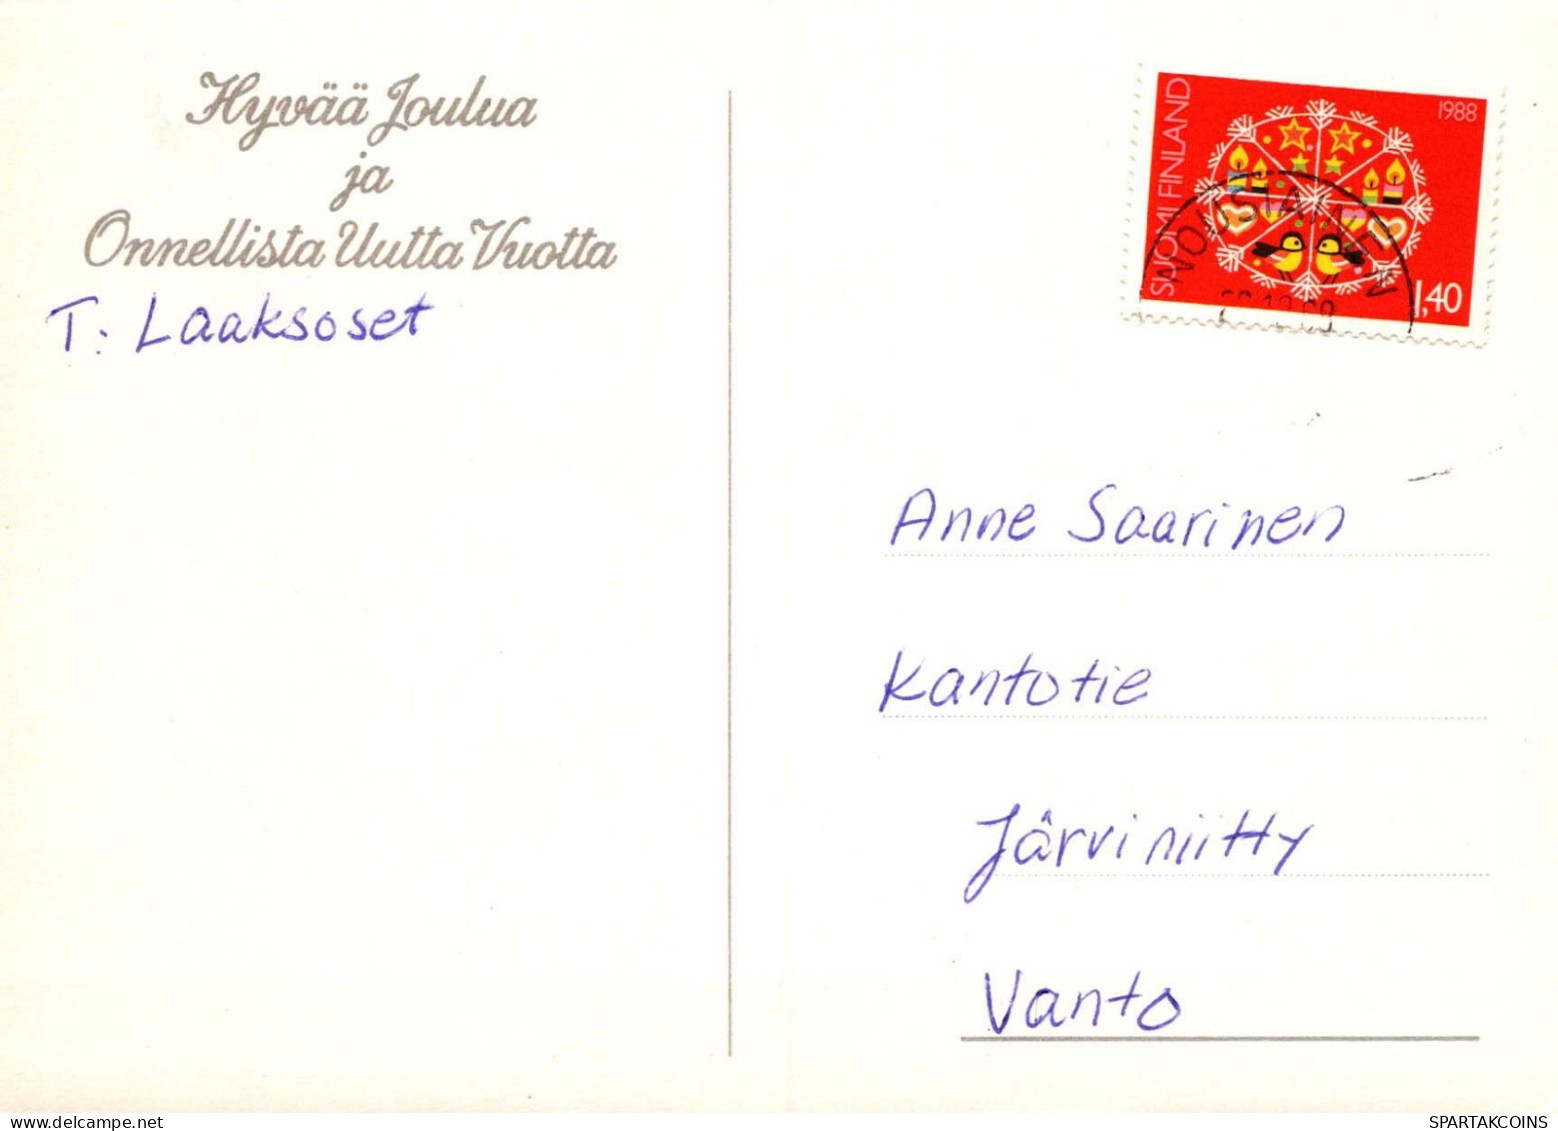 Hyvää Joulua
ja
Onnellista Uutta Vuotta
T: Laaksoset
SUOMI FINLAND
1988
1,40
NOUSIAINEN
Anne Saarinen
Kantotie
Järviniitty
Vanto
SPARTAKCOINS